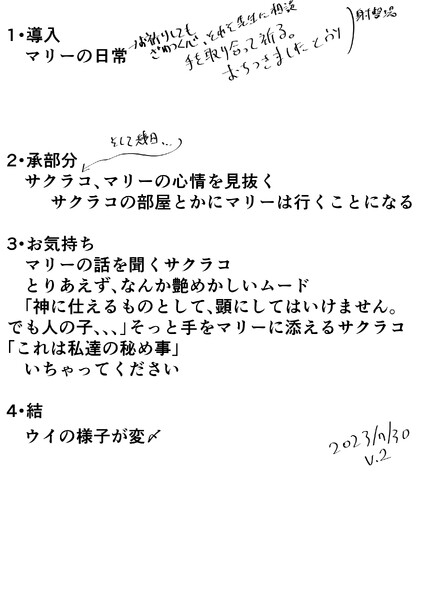 1・導入
マリーの日常
お祈りしても
ざわつく心、それを先生に相談
手を取り合って祈る。
おちつきましたとふり
そして数日...
2・承部分
サクラコ、マリーの心情を見抜く
サクラコの部屋とかにマリーは行くことになる
3・お気持ち
マリーの話を聞くサクラコ
とりあえず、なんか艶めかしいムード
「神に仕えるものとして、顕にしてはいけません。
でも人の子、、、」そっと手をマリーに添えるサクラコ
「これは私達の秘め事」
いちゃってください
4・結
ウイの様子が変〆
2023/11/30
V.2